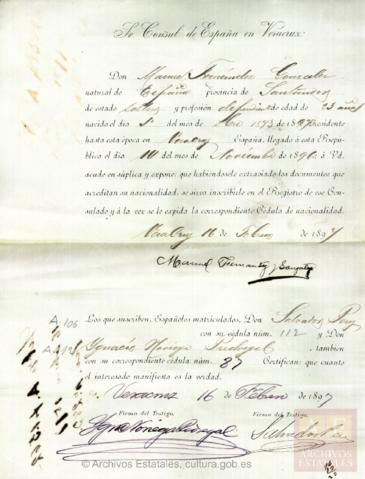 Sr. Consul de España en Veracruz:
Don Manuel Fernández González
natural de España provincia de Santander
de estado soltero y profesión dependiente de edad de 23 años
nacido el día 5 del mes de 1873 residente
hasta esta época en Veracruz España, llegado á esta Repú-
blica el día 10 del mes de Noviembre de 1890. á Vd.
acudo en súplica y expone: que habiéndosele extraviado los documentos que
acreditan su nacionalidad, se sirva inscribirle en el Registro de ese Con-
sulado y á la vez se le expida la correspondiente Cédula de nacionalidad.
Veracruz 16 de Febro de 1897
Manuel Fernandez y Gonzalez
Los que suscriben, Españoles matriculados, Don Salvador
A. 106
con su cédula núm. 112 y Don
Ignacio Noriega también
con su correspondiente cédula núm. 87 Certifican: que cuanto
el interesado manifiesta es la verdad.
Veracruz 16 de Febrero de 1897
Firma del Testigo, Firma del Testigo,
© Archivos Estatales, cultura.gob.es
ARCHIVOS
ESTATALES